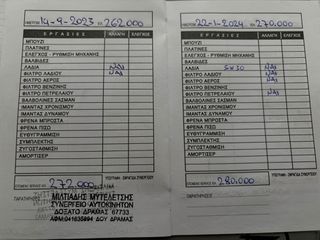 14-9-2023 262.000
ΕΡΓΑΣΙΕΣ ΑΛΛΑΓΗ ΕΛΕΓΧΟΣ
ΜΠΟΥΖΙ
ΠΛΑΤΙΝΕΣ
ΕΛΕΓΧΟΣ - ΡΥΘΜΙΣΗ ΜΗΧΑΝΗΣ
ΒΑΛΒΙΔΕΣ
ΛΑΔΙΑ ΝΑΙ
ΦΙΛΤΡΟ ΛΑΔΙΟΥ ΝΑΙ
ΦΙΛΤΡΟ ΑΕΡΟΣ
ΦΙΛΤΡΟ ΒΕΝΖΙΝΗΣ
ΦΙΛΤΡΟ ΠΕΤΡΕΛΑΙΟΥ
ΒΑΛΒΟΛΙΝΕΣ ΣΑΣΜΑΝ
ΙΜΑΝΤΑΣ ΧΡΟΝΙΣΜΟΥ
ΙΜΑΝΤΑΣ ΔΥΝΑΜΟΥ
ΦΡΕΝΑ ΜΠΡΟΣΤΑ
ΦΡΕΝΑ ΠΙΣΩ
ΕΥΘΥΓΡΑΜΜΙΣΗ
ΣΥΜΠΛΕΚΤΗΣ
ΖΥΓΟΣΤΑΘΜΙΣΗ
ΑΜΟΡΤΙΣΕΡ
ΕΠΟΜΕΝΟ SERVICE ΚΜ. 272.000
ΠΑΡΑΤΗΡΗΣΕΙΣ
ΜΙΛΤΙΑΔΗΣ ΜΥΤΕΛΕΤΣΗΣ
ΣΥΝΕΡΓΕΙΟ ΑΥΤΟΚΙΝΗΤΩΝ
ΔΟΞΑΤΟ ΔΡΑΜΑΣ 67733
ΑΦΜ:041635994 ΔΟΥ ΔΡΑΜΑΣ
22-1-2024 270.000
ΕΡΓΑΣΙΕΣ ΑΛΛΑΓΗ ΕΛΕΓΧΟΣ
ΜΠΟΥΖΙ
ΠΛΑΤΙΝΕΣ
ΕΛΕΓΧΟΣ - ΡΥΘΜΙΣΗ ΜΗΧΑΝΗΣ
ΒΑΛΒΙΔΕΣ
ΛΑΔΙΑ 5W30 ΝΑΙ
ΦΙΛΤΡΟ ΛΑΔΙΟΥ ΝΑΙ
ΦΙΛΤΡΟ ΑΕΡΟΣ ΝΑΙ
ΦΙΛΤΡΟ ΒΕΝΖΙΝΗΣ
ΦΙΛΤΡΟ ΠΕΤΡΕΛΑΙΟΥ ΝΑΙ
ΒΑΛΒΟΛΙΝΕΣ ΣΑΣΜΑΝ
ΙΜΑΝΤΑΣ ΧΡΟΝΙΣΜΟΥ
ΙΜΑΝΤΑΣ ΔΥΝΑΜΟΥ
ΦΡΕΝΑ ΜΠΡΟΣΤΑ
ΦΡΕΝΑ ΠΙΣΩ
ΕΥΘΥΓΡΑΜΜΙΣΗ
ΣΥΜΠΛΕΚΤΗΣ
ΖΥΓΟΣΤΑΘΜΙΣΗ
ΑΜΟΡΤΙΣΕΡ
ΥΠΟΓΡΑΦΗ - ΣΦΡΑΓΙΔΑ ΣΥΝΕΡΓΕΙΟΥ
ΕΠΟΜΕΝΟ SERVICE ΚΜ. 280.000
ΠΑΡΑΤΗΡΗΣΕΙΣ